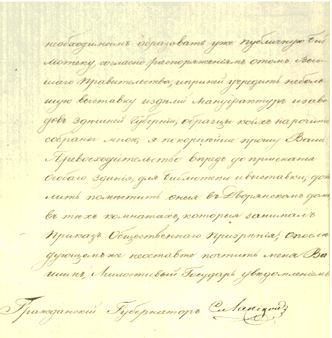 необходимымъ образовать уже публичную биб
лiотеку, согласно распоряженiямъ о томъ Выс
шаго Правительства, и при ней учредить неболь
шую выставку изделiй Мануфактуръ и заво
довъ здешней Губернiи, образцы коихъ нарочито
собраны мною, я покорнейше прошу Ваше
Превосходительство впредь до прiисканiя
особаго зданiя, для библiотеки и выставки, доз
лить поместить оныя въ Дворянскомъ доме
въ техъ комнатахъ, которыя занималъ
Приказъ Общественнаго Призренiя; о после
дующемъ же не оставте почтить меня Ва
шимъ, Милостивый Государь уведомленiемъ
Гражданскiй Губернаторъ С. Ланской